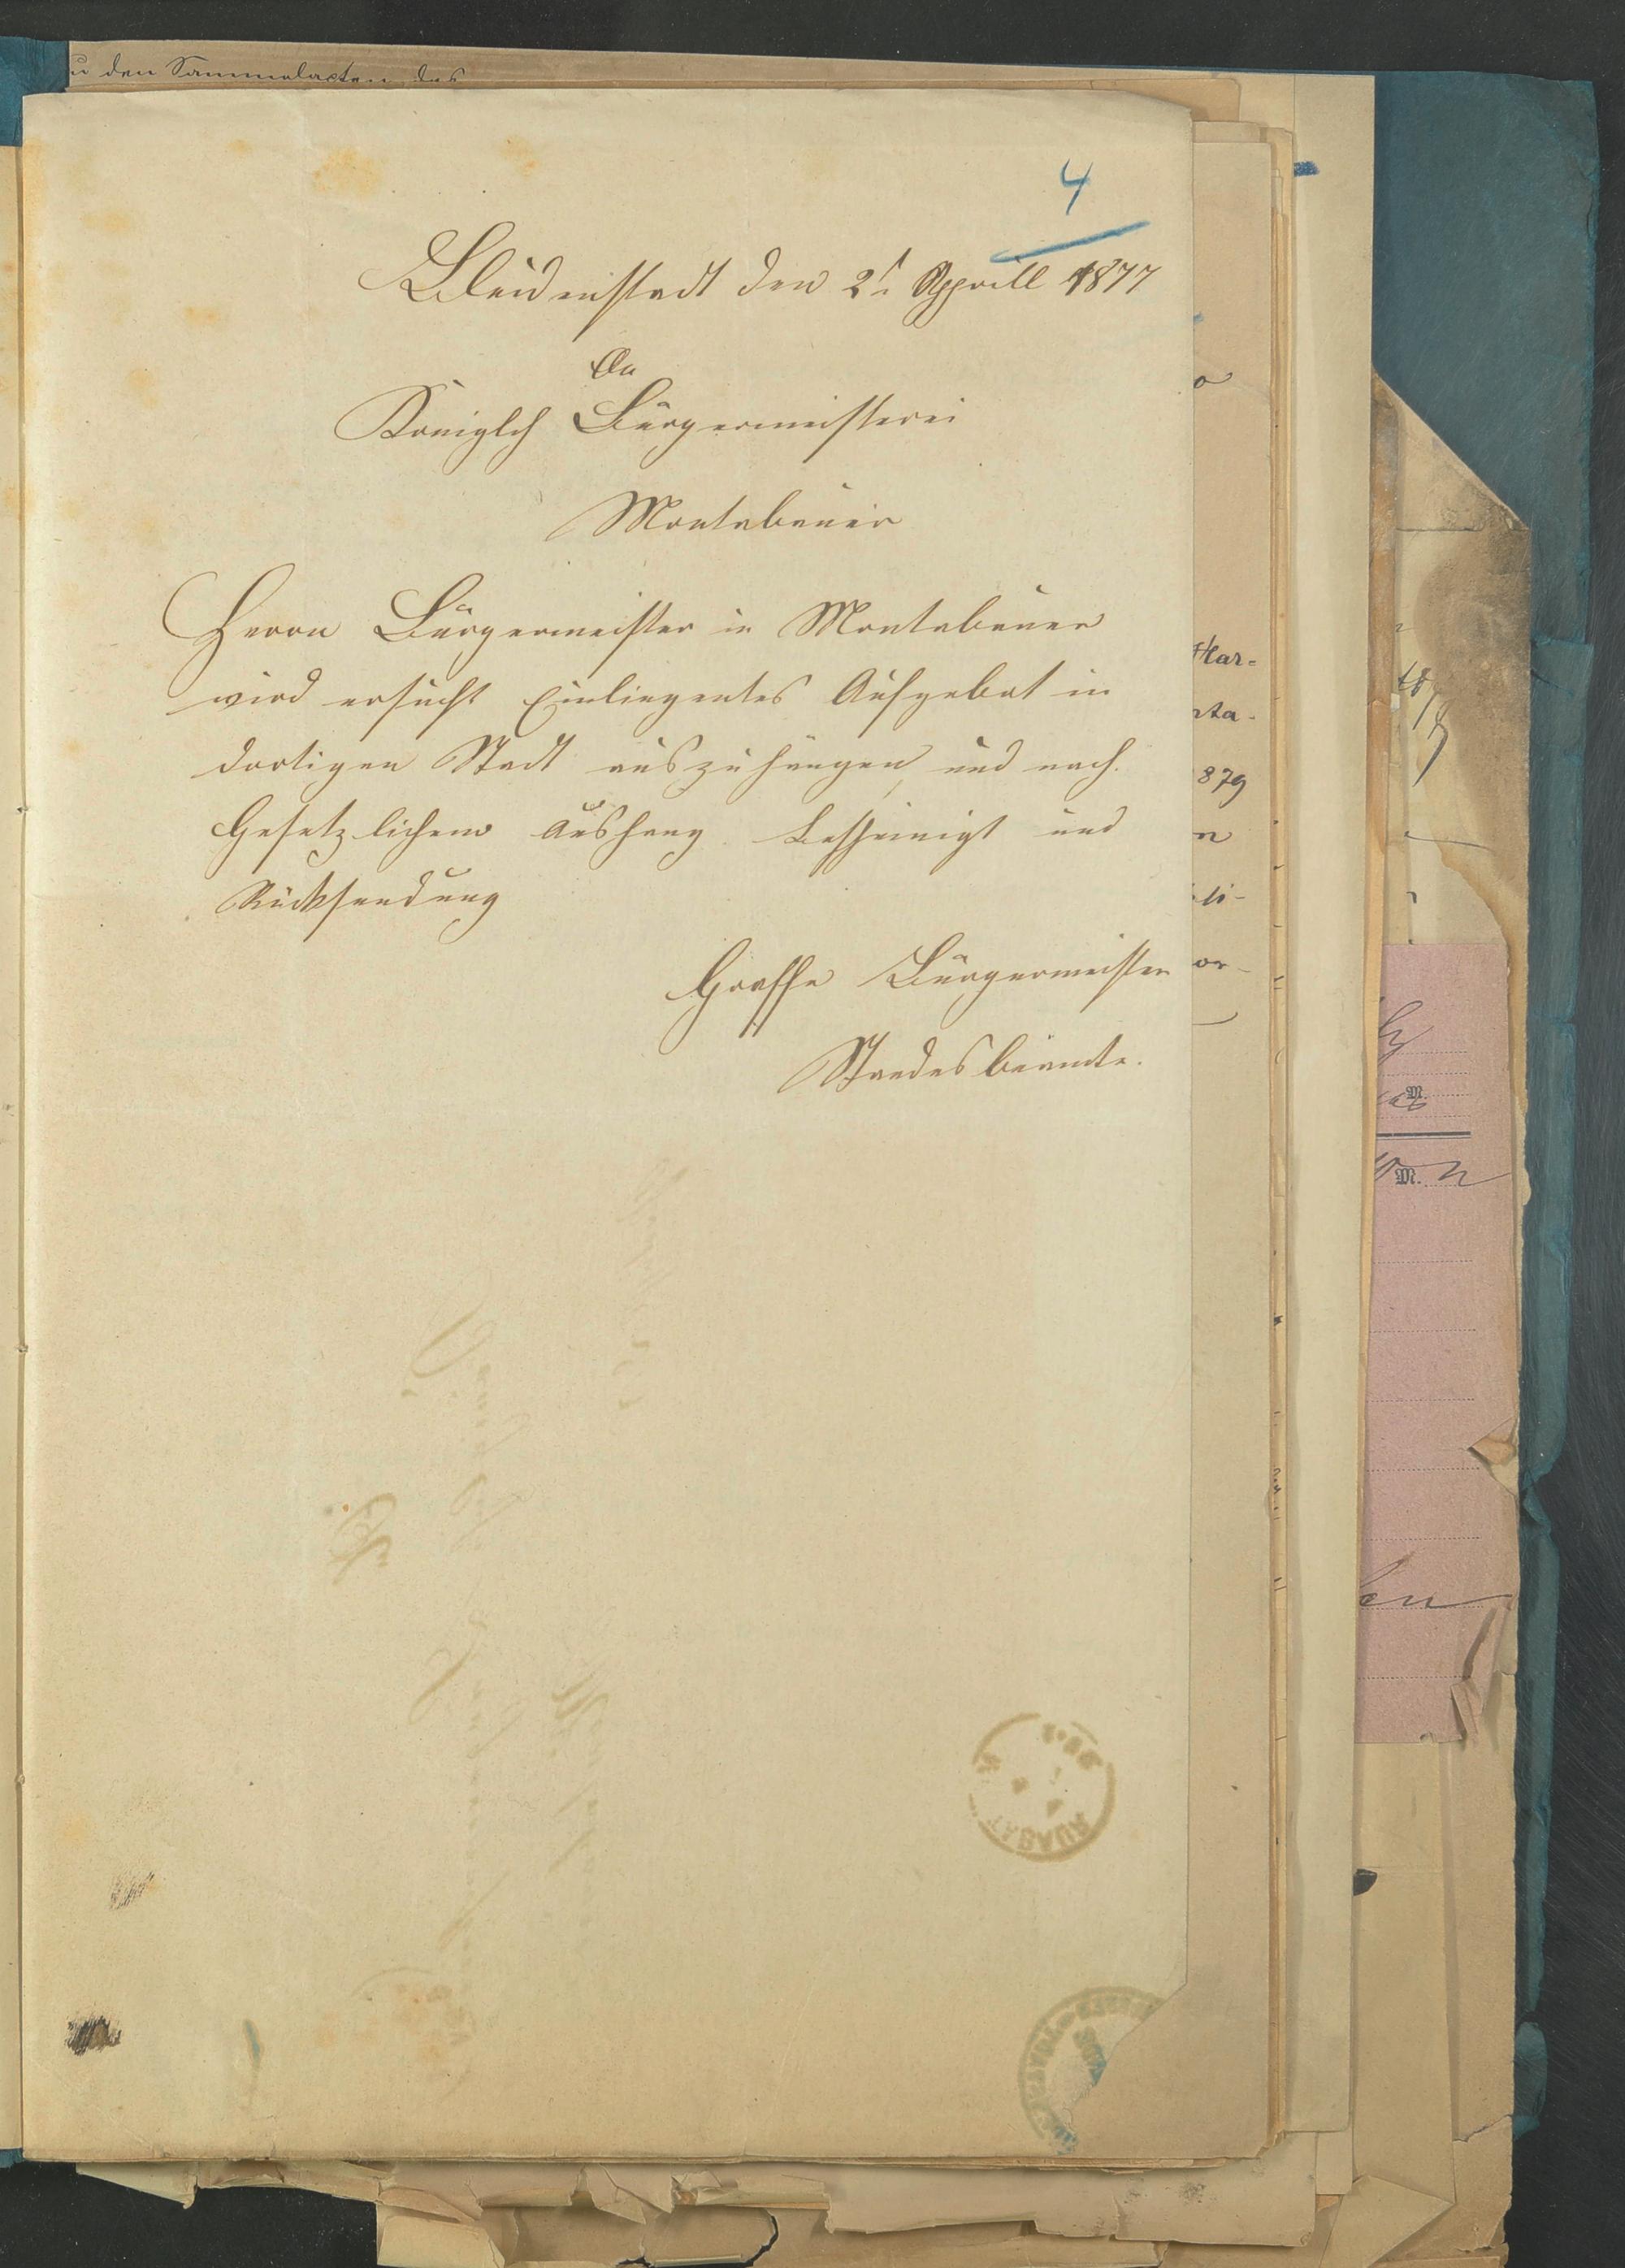 u den Sammelacten des
4
Bleidenstadt den 2t Apprill 1877
An
Königlch Bürgermeisterei
Montabauer
Herrn Bürgermeister in Montabauer
wird ersucht Einliegentes Aufgebot in
dortigen Stadt auszuhängen und nach
Gesetzlichem Aushang bescheinigt und
Rücksendung
Graffe Bürgermeister
Standesbeamte.